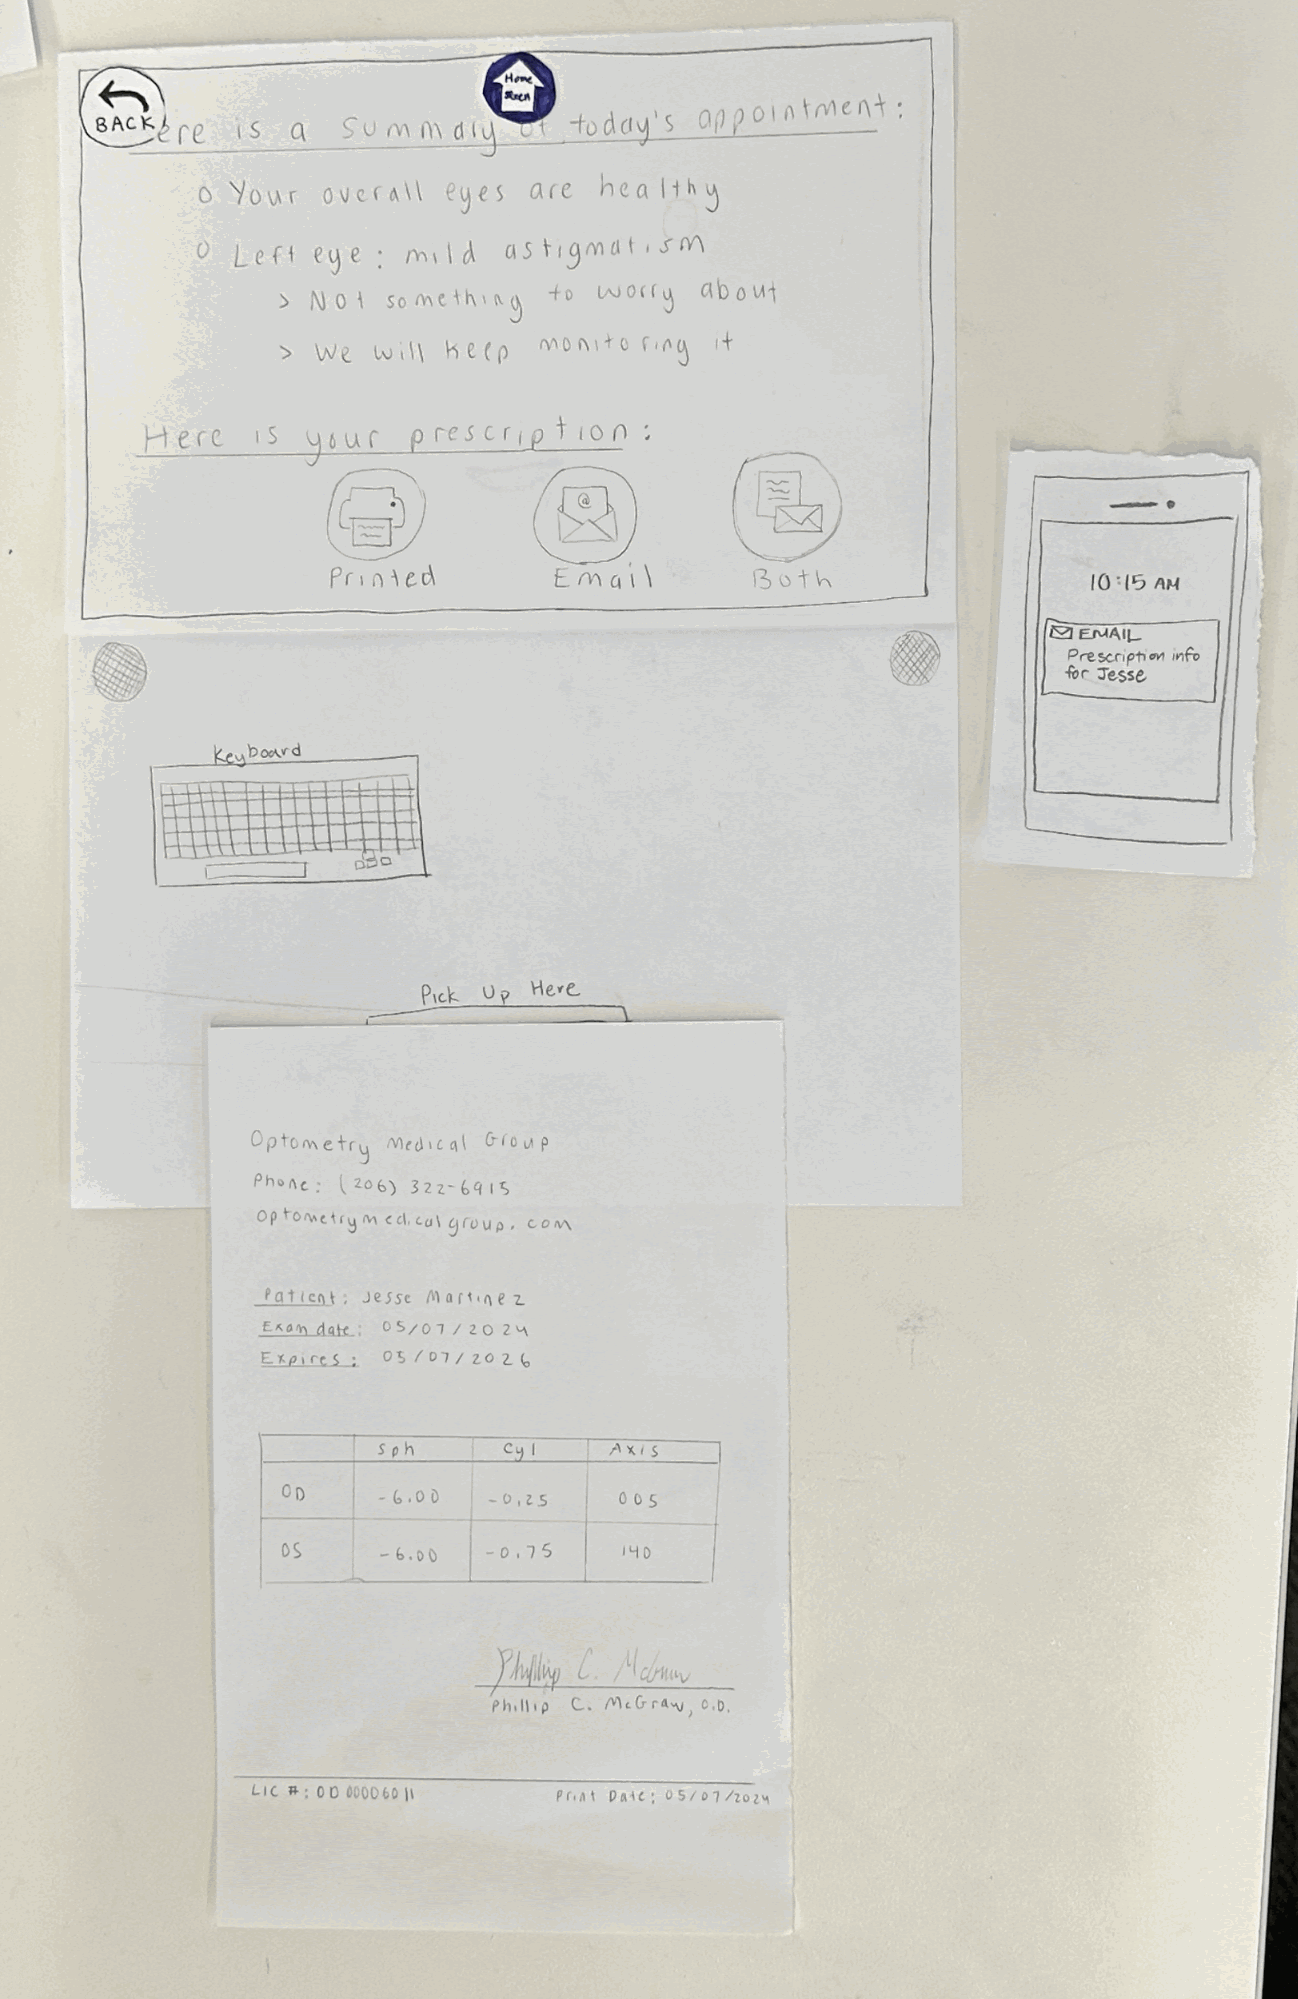 BACK
Home
Screen
ere is a summary of today's appointment:
o Your overall eyes are healthy
o Left eye: mild astigmatism
> Not something to worry about
> We will keep monitoring it
Here is your prescription:
@
Printed Email Both
10:15 AM
EMAIL
Prescription info
for Jesse
Keyboard
Pick Up Here
Optometry Medical Group
Phone: (206) 322-6915
optometrymedicalgroup.com
Patient: Jesse Martinez
Exam date: 05/07/2024
Expires: 05/07/2026
Sph Cyl Axis
OD -6.00 -0.25 005
OS -6.00 -0.75 140
Phillip C. McGraw
Phillip C. McGraw, O.D.
LIC #: OD 00006011 Print Date: 05/07/2024